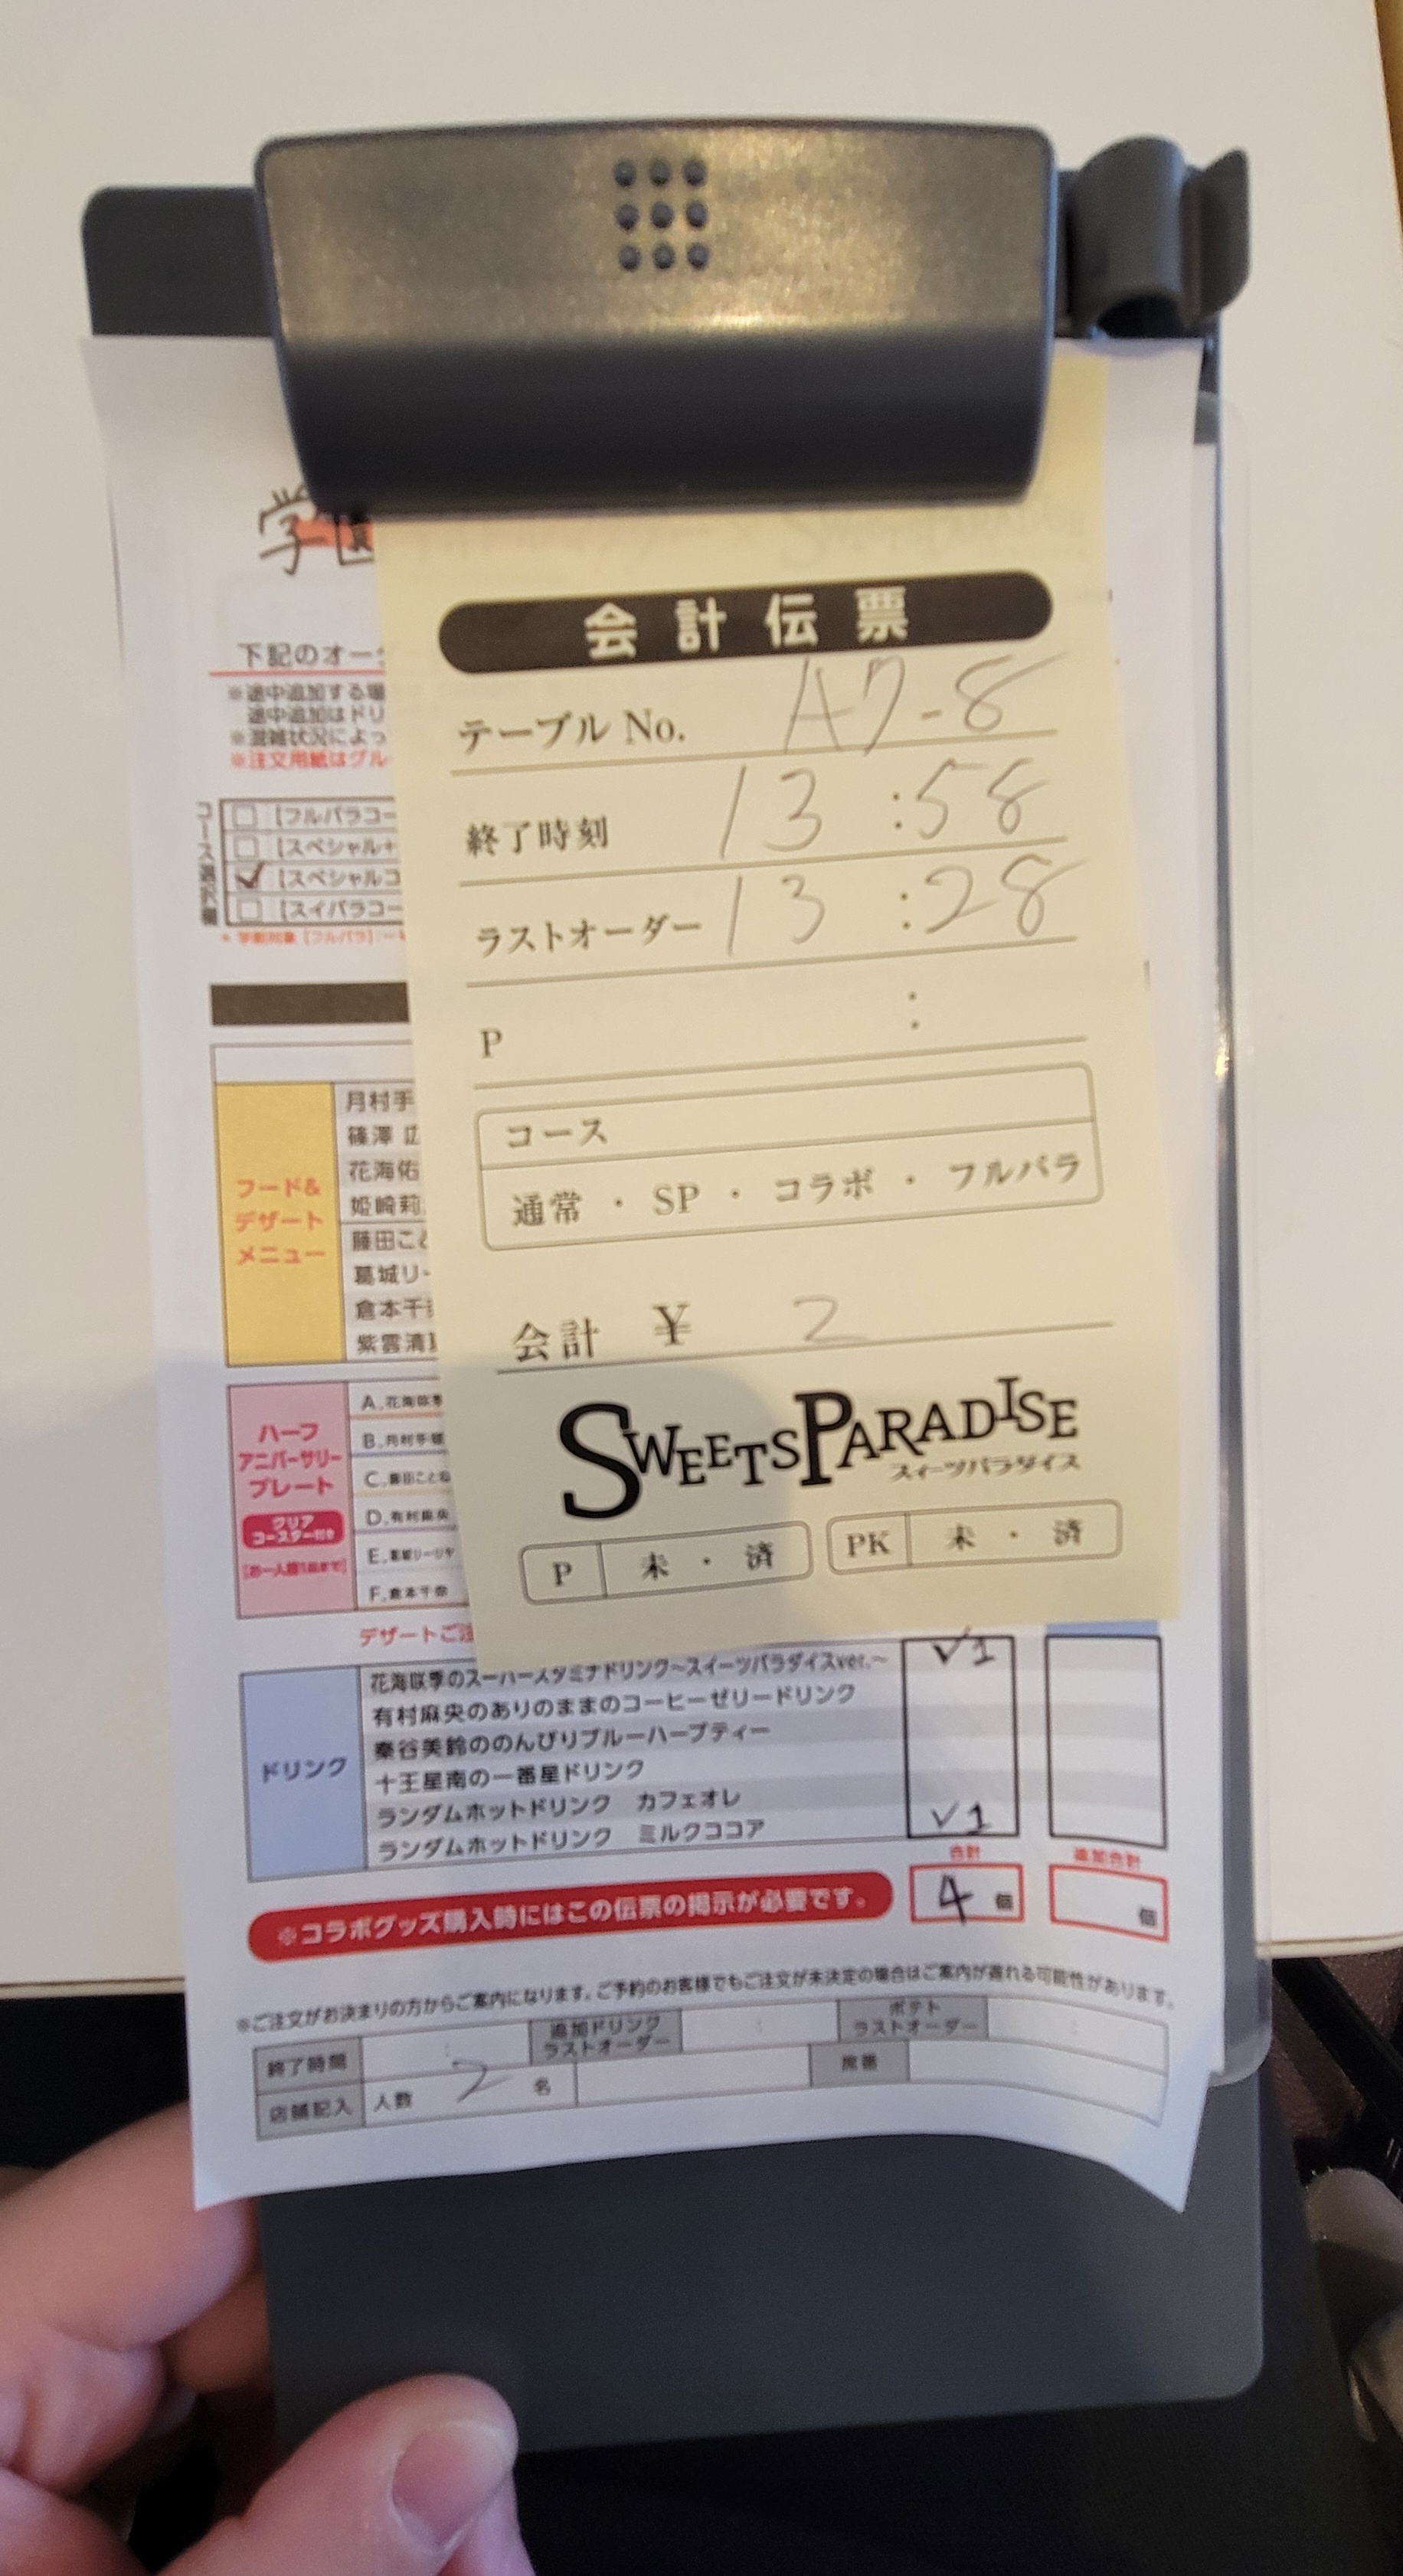 学園
下記のオー
※途中追加する場
途中追加はドリ
※混雑状況によっ
※注文用紙はグル
コース選択欄
【フルパラコー
【スペシャル+
✓【スペシャルコ
【スイパラコー
会計伝票
テーブル No. A7-8
終了時刻 13:58
ラストオーダー 13:28
P :
コース
通常 ・ SP ・ コラボ ・ フルパラ
会計 ¥ 2
SWEETSPARADISE
スイーツパラダイス
P 未 ・ 済 PK 未 ・ 済
フード&
デザート
メニュー
月村手
篠澤 広
花海佑
姫崎莉
藤田こと
葛城リー
倉本千
紫雲清
ハーフ
アニバーサリー
プレート
クリア
コースター付き
[お一人様1個まで]
A.花海咲季
B.月村手毬
C.藤田ことね
D.有村麻央
E.葛城リーリヤ
F.倉本千奈
デザートご注
ドリンク
花海咲季のスーパースタミナドリンク~スイーツパラダイスver.~ ✓1
有村麻央のありのままのコーヒーゼリードリンク
秦谷美鈴ののんびりブルーハーブティー
十王星南の一番星ドリンク
ランダムホットドリンク カフェオレ
ランダムホットドリンク ミルクココア ✓1
合計 追加合計
※コラボグッズ購入時にはこの伝票の掲示が必要です。 4 個 個
※ご注文がお決まりの方からご案内になります。ご予約のお客様でもご注文が未決定の場合はご案内が遅れる可能性があります。
終了時間 : 追加ドリンク ラストオーダー : ポテト ラストオーダー :
店舗記入 人数 2 名 席番